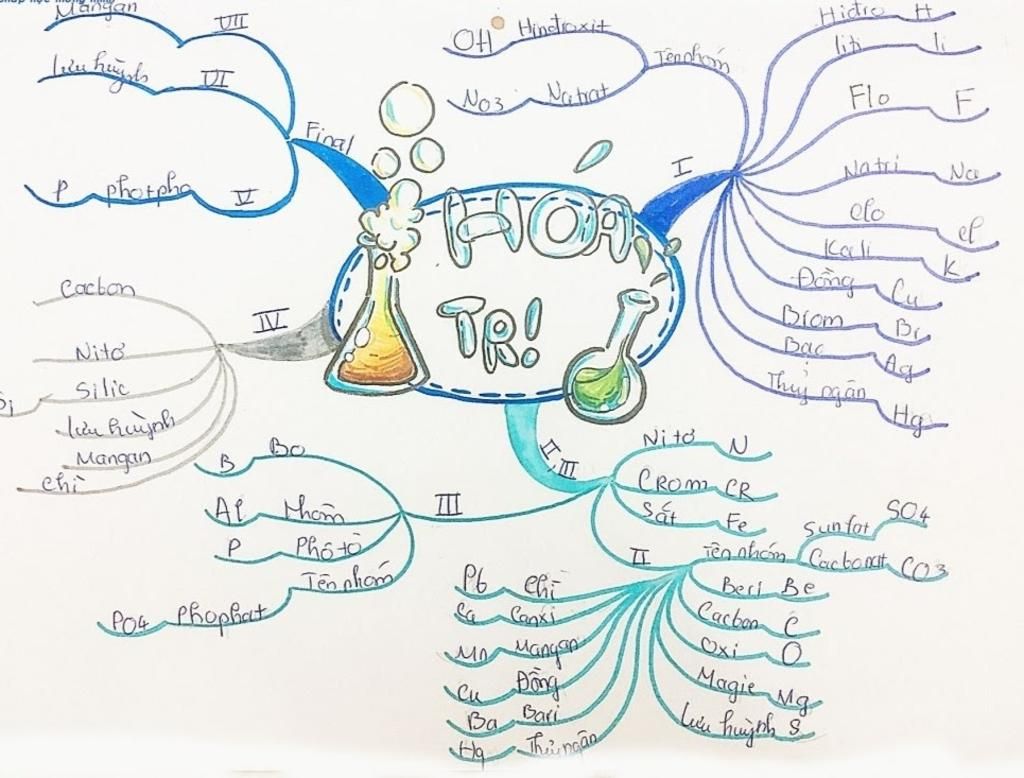 HOÁ
TRỊ!
I
Tên nhóm
OH Hinđroxit
NO3 Natrat
Hiđro H
liti li
Flo F
Natri Na
Clo Cl
Kali K
Đồng Cu
Brom Br
Bạc Ag
Thuỷ ngân Hg
II, III
Nitơ N
CRom CR
Sắt Fe
II
Tên nhóm
Sunfat SO4
Cacbonat CO3
Beri Be
Cacbon C
Oxi O
Magie Mg
lưu huỳnh S
Pb Chì
Ca Canxi
Mn Mangan
Cu Đồng
Ba Bari
Hg Thủy ngân
III
B Bo
Al Nhôm
P Phôtô
Tên nhóm
PO4 Phophat
IV
Cacbon
Nitơ
Silic
lưu huỳnh
Mangan
Chì
Final
Mangan VII
lưu huỳnh VI
P photpho V